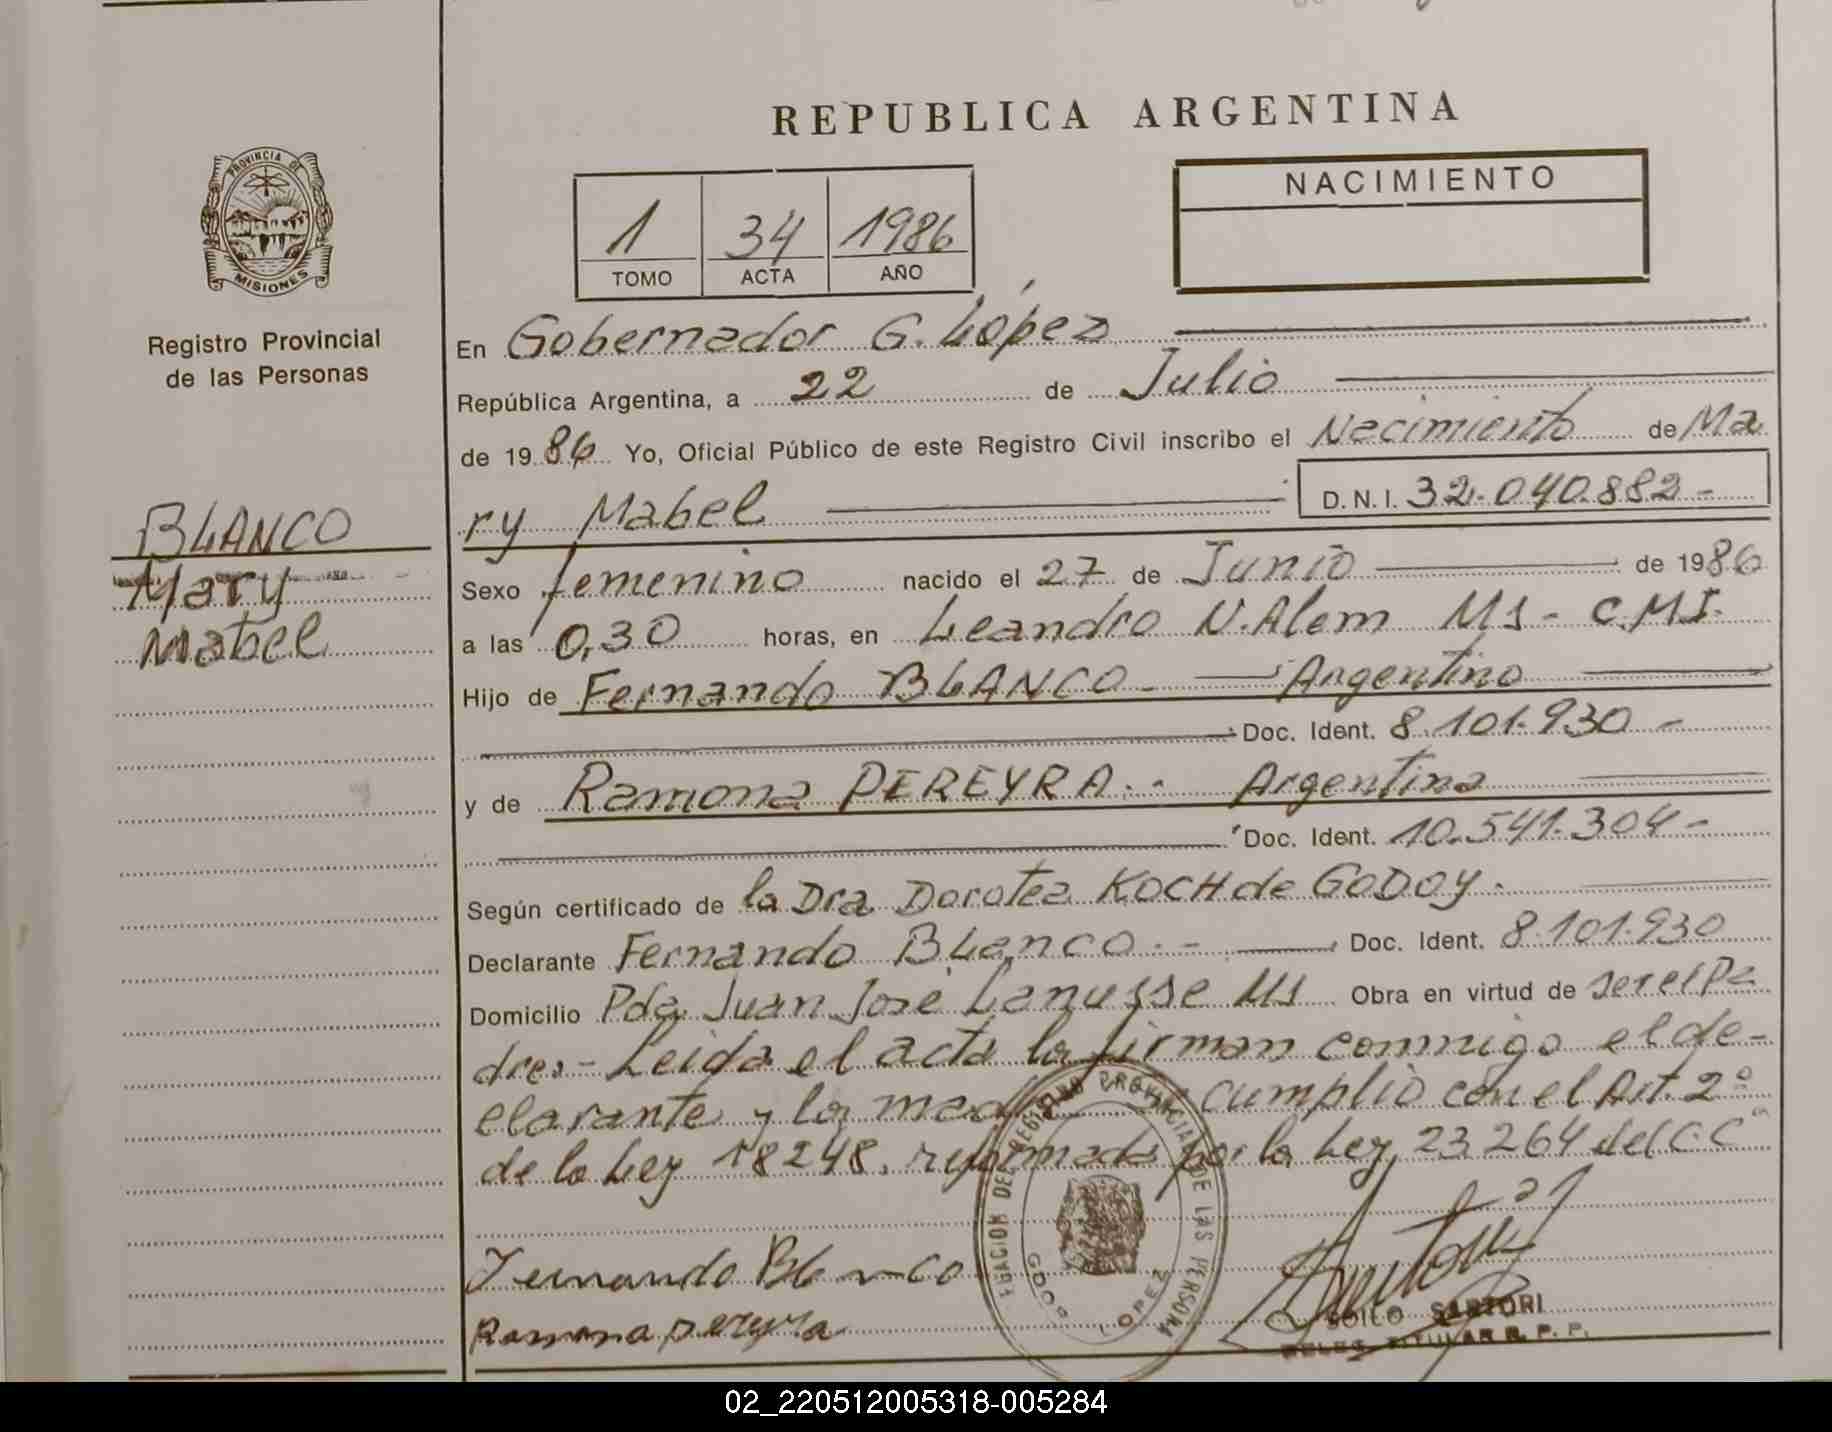 REPUBLICA ARGENTINA
PROVINCIA DE
MISIONES
Registro Provincial
de las Personas
1 34 1986
TOMO ACTA AÑO
NACIMIENTO
BLANCO
Mary
Mabel
En Gobernador G. López
República Argentina, a 22 de Julio
de 1986 Yo, Oficial Público de este Registro Civil inscribo el Nacimiento de Ma
ry Mabel D.N.I. 32.040.882-
Sexo femenino nacido el 27 de Junio de 1986
a las 0,30 horas, en Leandro N. Alem Ms - C.M.I.
Hijo de Fernando BLANCO - Argentino
Doc. Ident. 8.101.930 -
y de Ramona PEREYRA.- Argentina
Doc. Ident. 10.541.304-
Según certificado de la Dra Dorotea KOCH de GODOY.
Declarante Fernando Blanco.- Doc. Ident. 8.101.930
Domicilio Pda. Juan José Lanusse Ms Obra en virtud de ser el Pa
dre.- Leida el acta la firman conmigo el de-
clarante y la madre cumplio con el Art. 2º
de la Ley 18248. reformada por la Ley 23.264 del C.C.
Fernando Blanco
Ramona pereyra
REGISTRO PROVINCIAL DE LAS PERSONAS
GDOR. LOPEZ
SARTORI
TITULAR R. P. P.
02_220512005318-005284